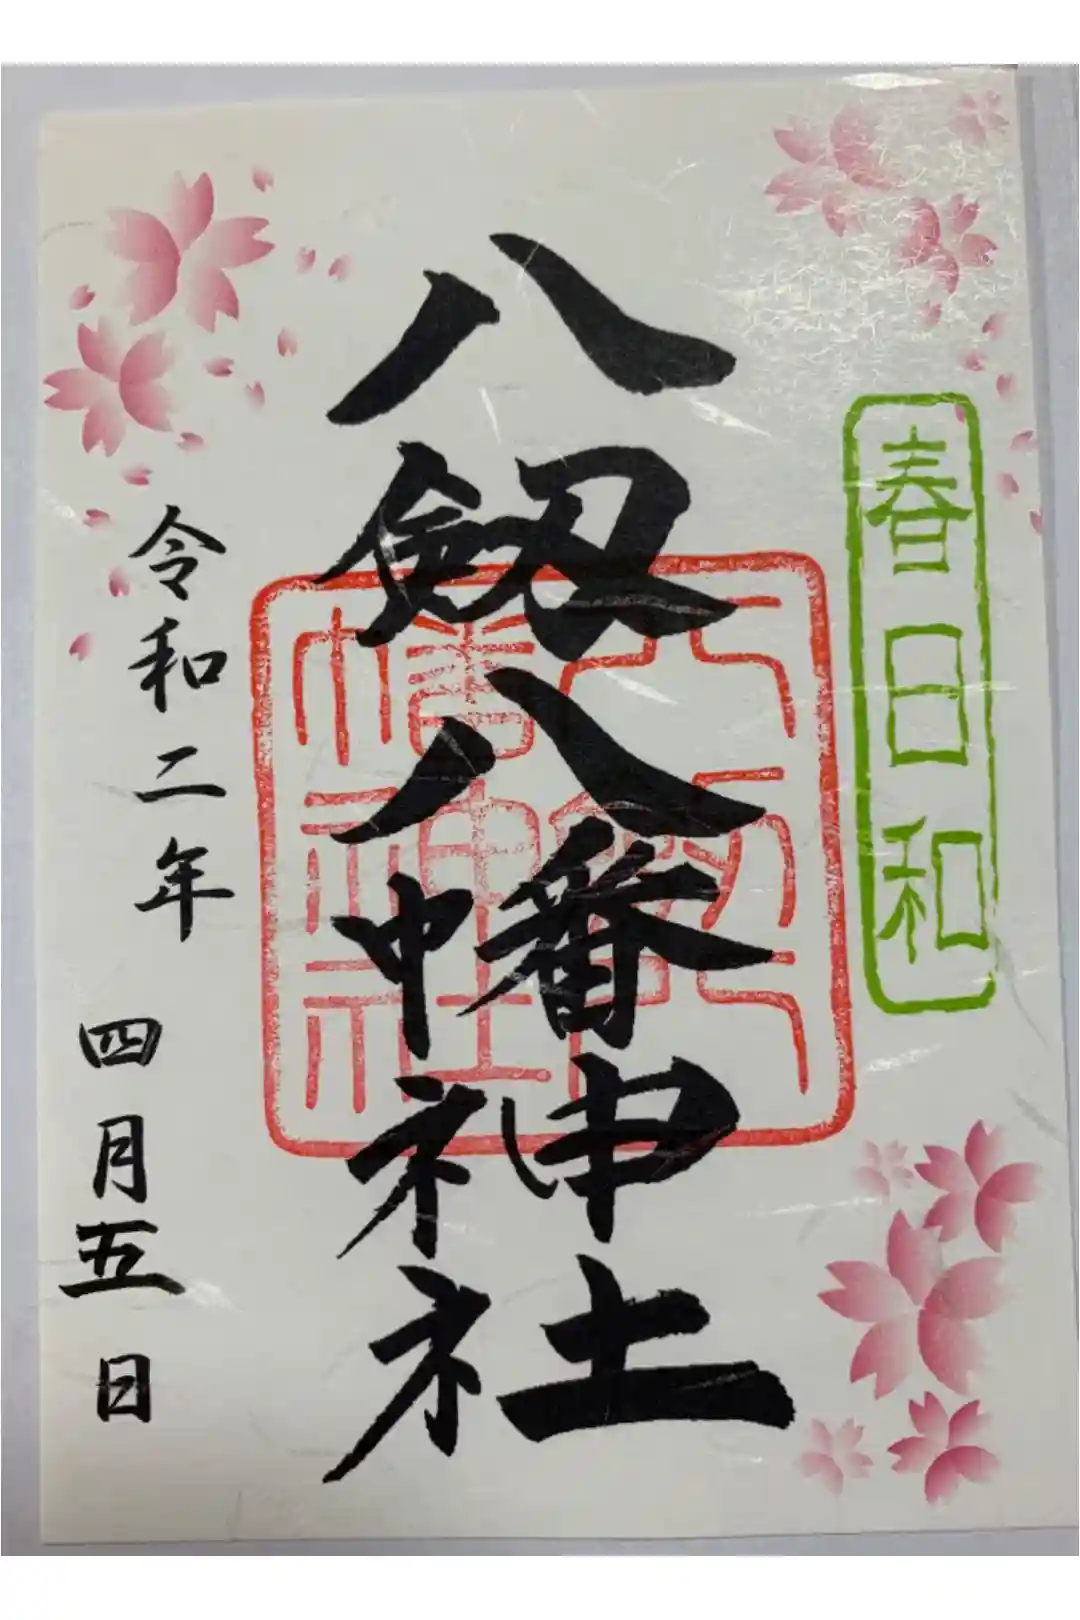 春日和
八剱八幡神社
八剱八
幡神社
令和二年
四月五日